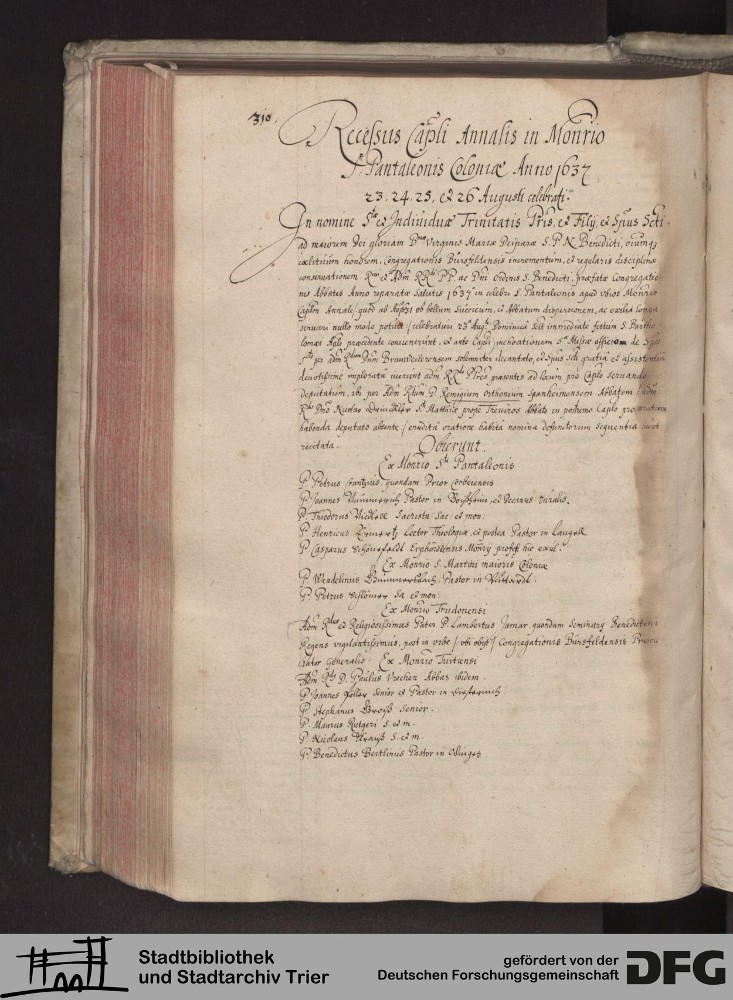 310.
Recessus Capli Annalis in Monrio
S. Pantaleonis Coloniæ Anno 1637
23. 24. 25. et 26 Augusti celebrati.
In nomine Stæ et Indiuiduæ Trinitatis Pris, et Filij, et Spus Scti.
ad maiorem Dei gloriam Bmæ Virginis Mariæ Deiparæ S. P. N. Benedicti, oiumq
cælitum honorem, Congregationis Bursfeldensis incrementum, et regularis disciplinæ
conseruationem. Rmi et Adm RRdi PP. ac Dni Ordinis S. Benedicti præfatæ Congregatio
nis Abbates Anno reparatæ Salutis 1637 in celebri S. Pantaleonis apud Vbios Monrio
Caplm Annale (quod ob bellum Suecicum, et Abbatum dispersionem, ac exilia longa
seruari nullo modo potuit) celebraturi 23 Augi Dominica scilt immediate festum S. Bartho
lomæi Apli præcedente conuenerunt, et ante Capli inchoationem Stæ Missæ officium de Spu
Sto per adm Rdum Dnum Brauweilerensem solemniter decantato, et Spus Sti gratia et assistentia
deuotissime implorata iuerunt adm RRdi Pres præsentes ad locum pro Caplo seruando
deputatum, ibi per Adm Rdum D. Remigium Orthonium Spanheimensem Abbatem
Rdo Dno Nicolao S. Matthiæ prope Treuiros Abbate in postremo Caplo pro oratione
habenda deputato absente) erudita oratione habita nomina defunctorum sequentia sunt
recitata. Obierunt.
Ex Monrio Sti Pantaleonis
P. Petrus quondam Prior Corbeiensis
P. Joannes Pastor in et Decanus ruralis.
P. Theodorus Sacrista Sac. et mon:
P. Henricus Lector Theologiæ, et postea Pastor in
P. Casparus Schönefeldt Erphordensis Monrij profess. hic exul.
Ex Monrio S. Martini maioris Coloniæ
P. Wendelinus Pastor in
P. Petrus Schlömer sa. et mon:
Ex Monrio Trudonensi
Adm Rdus et Religiosissimus Pater P. Lambertus Jamar quondam Seminarij Benedictini
Regens vigilantissimus, post in vrbe (vbi obijt) Congregationis Bursfeldensis Procu
rator Generalis. Ex Monrio Tuitiensi
Adm Rdus D. Paulus Vrechen Abbas ibidem.
P. Joannes Senior et Pastor in
P. Stephanus Senior.
P. Maurus Rutgeri S. et m.
P. Nicolaus S. et m.
P. Benedictus Bertlinus Pastor in
Stadtbibliothek
und Stadtarchiv Trier
gefördert von der
Deutschen Forschungsgemeinschaft
DFG